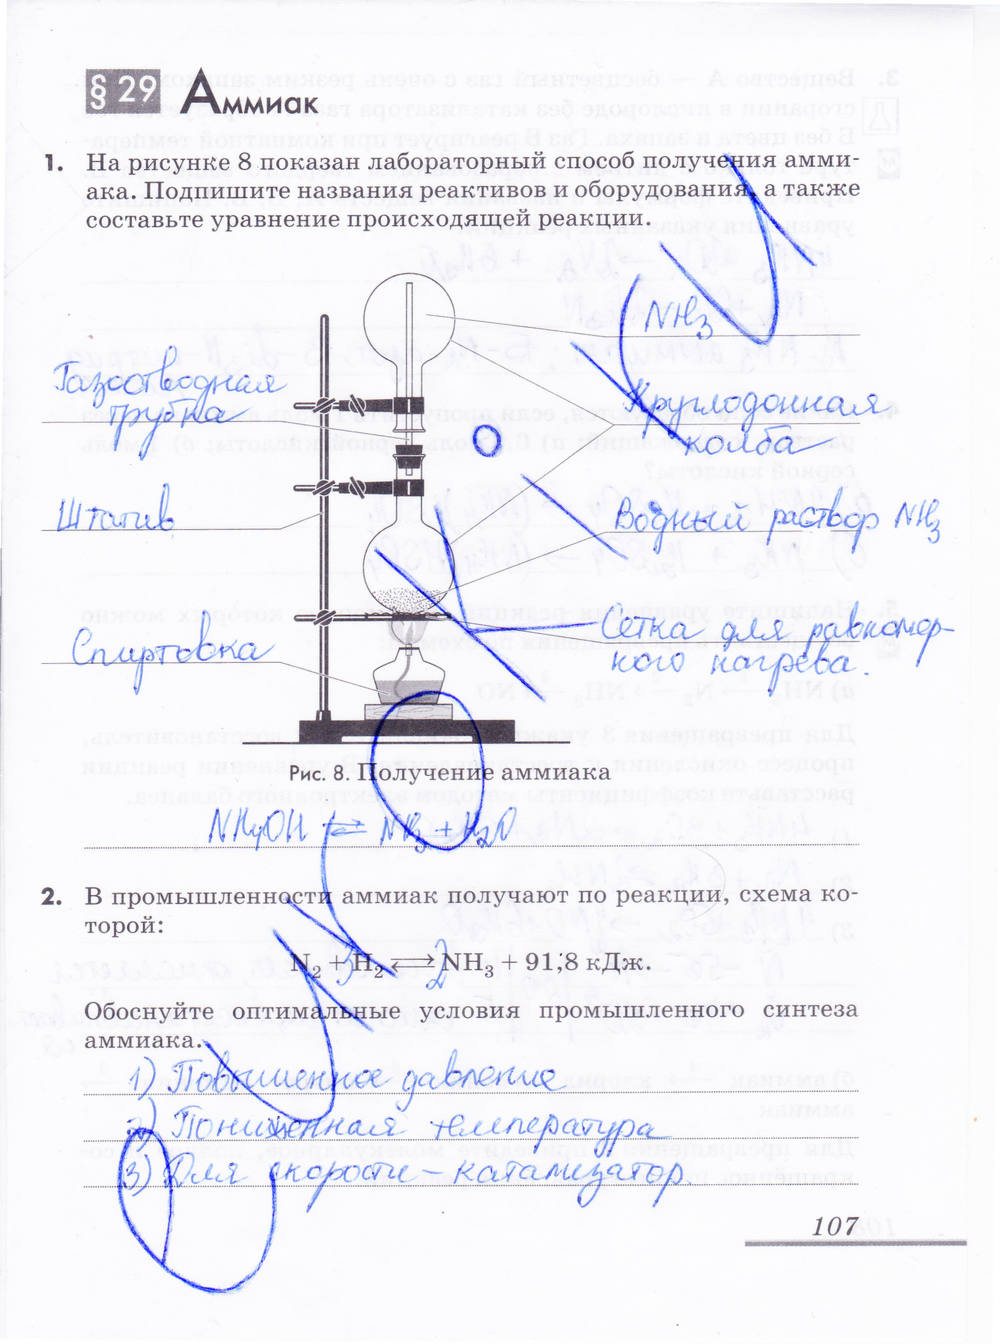 § 29 Аммиак
1. На рисунке 8 показан лабораторный способ получения амми-
ака. Подпишите названия реактивов и оборудования, а также
составьте уравнение происходящей реакции.
NH3
Газоотводная
трубка
Круглодонная
колба
Штатив
Водный раствор NH3
Спиртовка
Сетка для равномер-
ного нагрева.
Рис. 8. Получение аммиака
NH4OH ⇄ NH3 + H2O
2. В промышленности аммиак получают по реакции, схема ко-
торой:
N2 + 3H2 ⇄ 2NH3 + 91,8 кДж.
Обоснуйте оптимальные условия промышленного синтеза
аммиака.
1) Повышенное давление
2) Пониженная температура
3) Для скорости – катализатор.
107